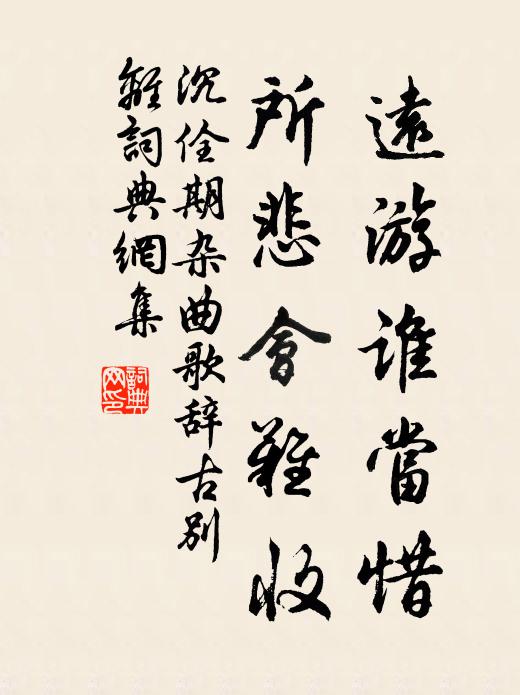 遠游誰當惜
所悲會難收
沉佺期杂曲歌辞古别
離詞典網集
詞典
网印